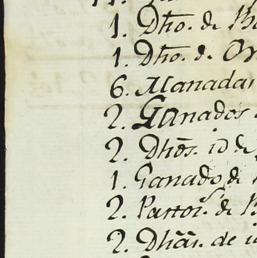 1. Dho. de
1. Dho. de
6. Manadas
2. Ganados
2. Dhos. id de
1. Ganado de
2. Pastors. de
2. Dhas. de